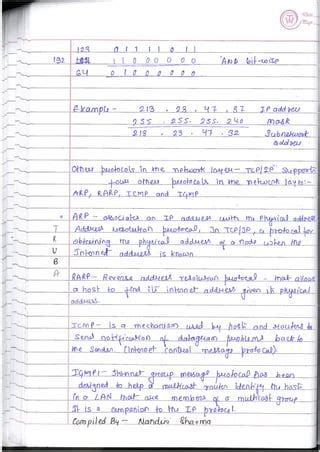 123 0 1 1 1 1 0 1 1
192 1 1 0 0 0 0 0 0 AND bit-wise
64 0 1 0 0 0 0 0 0
Example - 213 . 23 . 47 . 37 IP address
255 . 255. 255. 240 mask
213 . 23 . 47 . 32 Subnetwork
address
Other protocols in the network layer - TCP/IP supports
four other protocols in the network layer:-
ARP, RARP, ICMP and IGMP
ARP - associates an IP address with the physical address
Address resolution protocol, In TCP/IP, a protocol for
obtaining the physical address of a node when the
Internet address is known
T
R
U
B
A
RARP - Reverse address resolution protocol - that allows
a host to find its internet address given its physical
address.
ICMP - is a mechanism used by hosts and routers to
send notification of datagram problems back to
the sender (Internet control message protocol)
IGMP - Internet group message protocol has been
designed to help a multicast router identify the hosts
in a LAN that are members of a multicast group
It is a companion to the IP protocol.
Compiled By - Nandini Sharma